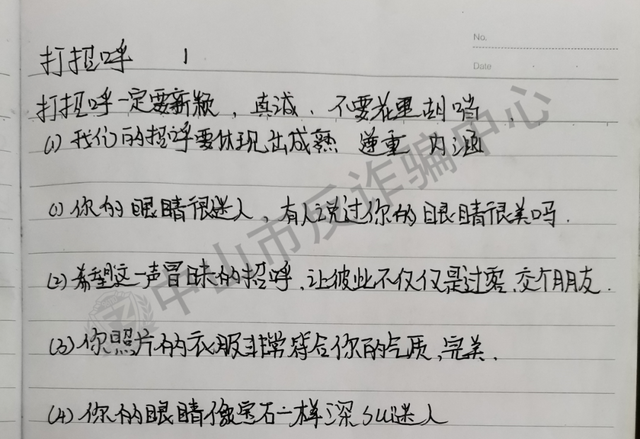 No.
Date
打招呼 1
打招呼一定要新颖，真诚、不要花里胡哨．
(1) 我们的招呼要体现出成熟 莲重 内涵
(1) 你的眼睛很迷人，有人说过你的眼睛很美吗．
(2) 希望这一声冒昧的招呼，让彼此不仅仅是过客，交个朋友．
(3) 你照片的衣服非常符合你的气质，完美．
(4) 你的眼睛像宝石一样深 迷人
中山市反诈骗中心